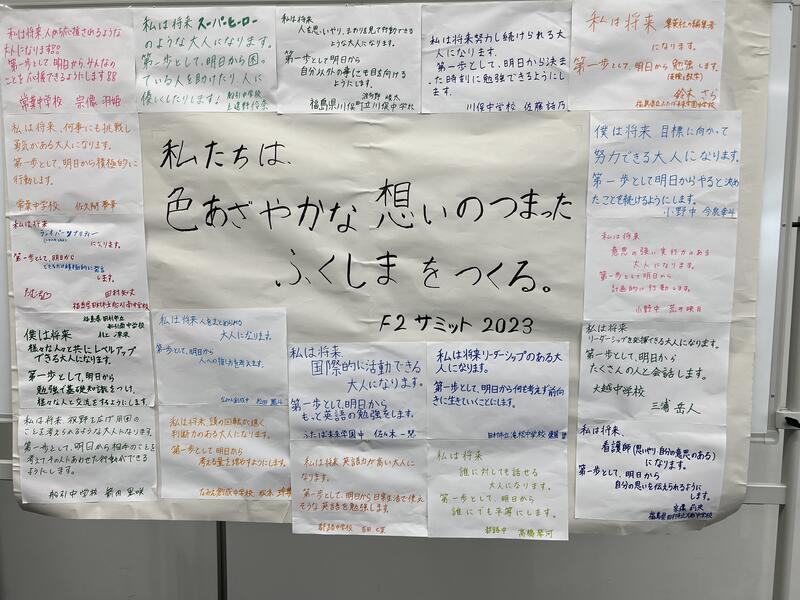 私は将来人から応援されるような
大人になります!!
第一歩として、明日から、みんなの
ことを応援できるようにします!!
常葉中学校
私は将来スーパーヒーロー
のような大人になります。
第一歩として、明日から困っ
ている人を助けたり、人に
優しくしたりします!
船引中学校
私は将来
人を思いやり、まわりを見て行動できる
ような大人になります。
第一歩として明日から
自分以外の事にも目を向ける
ようにします。
福島県川俣町立川俣中学校
私は将来努力し続けられる大
人になります。
第一歩として、明日から決まっ
た時刻に勉強できるようにしま
す。
川俣中学校 佐藤
私は将来 集英社の編集者
になります。
第一歩として、明日から勉強します。
鈴木 さら
私は将来、何事にも挑戦し
勇気がある大人になります。
第一歩として、明日から積極的に
行動します。
常葉中学校 佐久間
私たちは、
色あざやかな想いのつまった
ふくしまをつくる。
F2サミット2023
僕は将来 目標に向かって
努力できる大人になります。
第一歩として明日からやると決め
たことを続けるようにします。
小野中 今泉
私は将来
になります。
第一歩として、明日から
します。
田村
福島県田村市立船引南中学校
私は将来
意思の強い実行力のある
大人になります。
第一歩として明日から
計画的に行動します。
小野中
福島県田村市立
船引南中学校
僕は将来
様々な人々と共にレベルアップ
できる大人になります。
第一歩として、明日から
勉強して基礎知識をつけ、
様々な人と交流をするようにします。
私は将来人をまとめられる
大人になります。
第一歩として、明日から
人への接し方を考えます。
なみえ創成中 松田
私は将来
国際的に活動できる
大人になります。
第一歩として、明日から
もっと英語の勉強をします。
ふたば未来学園中 佐々木
私は将来リーダーシップのある大
人になります。
第一歩として、明日から何を考えず前向
きに生きていくことにします。
田村市立滝根中学校
私は将来
リーダーシップを発揮できる大人になります。
第一歩として、明日から
たくさんの人と会話します。
大越中学校
三浦 岳人
私は将来 視野を広げ周囲の
ことを考えられるような大人になります。
第一歩として、明日から相手のことを
考えその人にあわせた行動ができる
ようにします。
船引中学校 箭内
私は将来 頭の回転が速く
判断力のある大人になります。
第一歩として 明日から
考える量を増やすようにします。
なみえ創成中学校 松本
私は将来 英語力が高い大人に
なります。
第一歩として、明日から日常生活で使え
そうな英語を勉強します。
都路中学校 吉田
私は将来
誰に対しても話せる
大人になります。
第一歩として、明日から
誰にでも平等にします。
都路中 高橋 琴河
私は、将来
看護師(思いやり・自分の意思のある)
になります。
第一歩として、明日から
自分の思いを伝えられるように
します。
福島県田村市立大越中学校